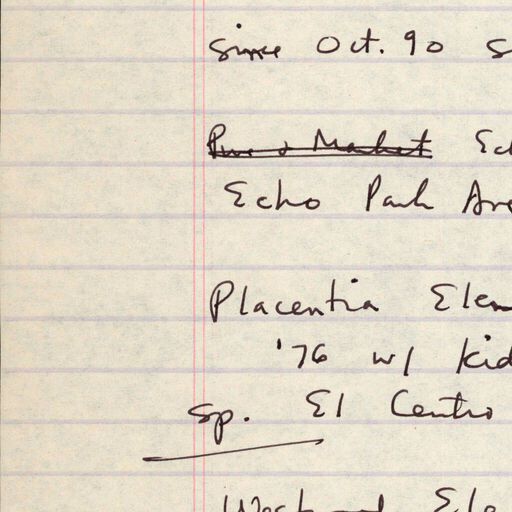 since Oct. 90 S
Pine & Market Ec
Echo Park Ave
Placentia Elem
'76 w/ kid
Sp. El Centro
Westwood Ele